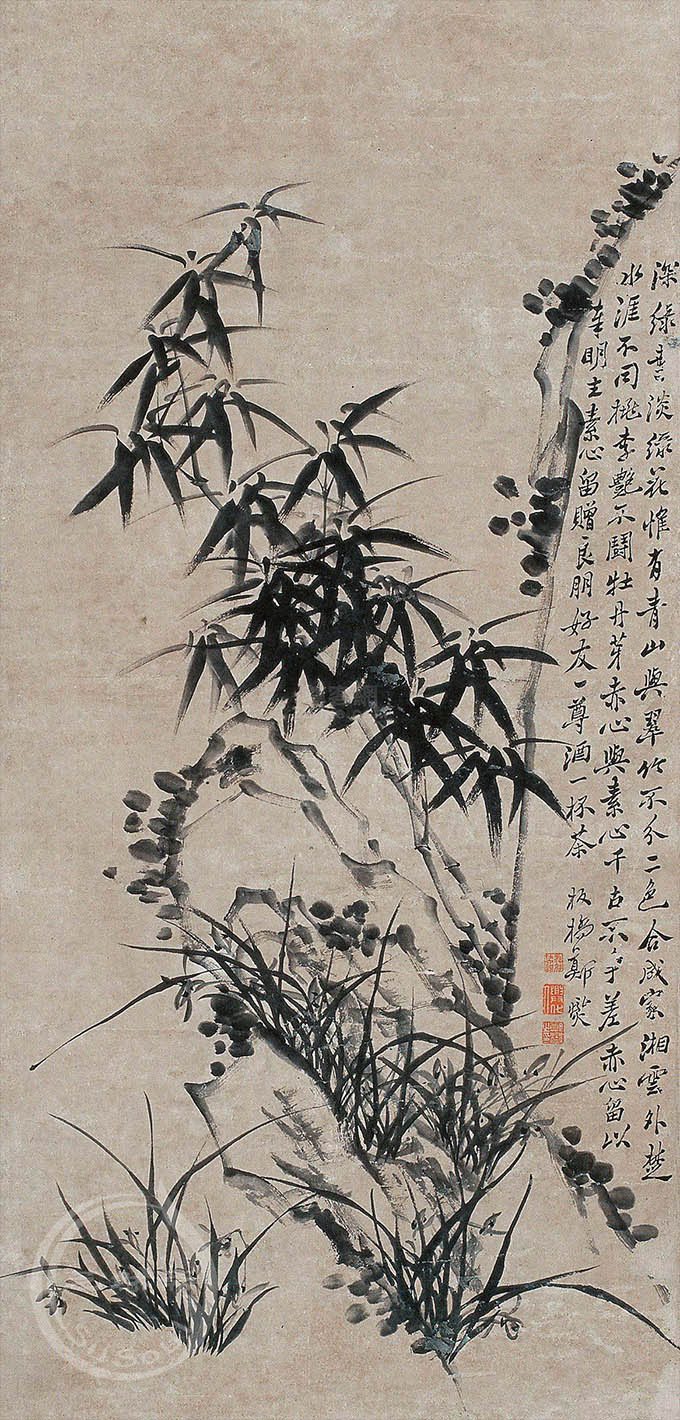 深綠淡綠花惟有青山與翠竹不分二色合成家湘雲外楚
水涯不同桃李艷不鬪牡丹芽赤心與素心千古不爭差赤心留以
奉明主素心留贈良朋好友一尊酒一杯茶 板橋鄭燮